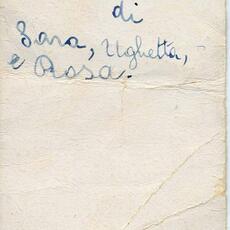 di
Sara, Ughetta,
e Rosa.